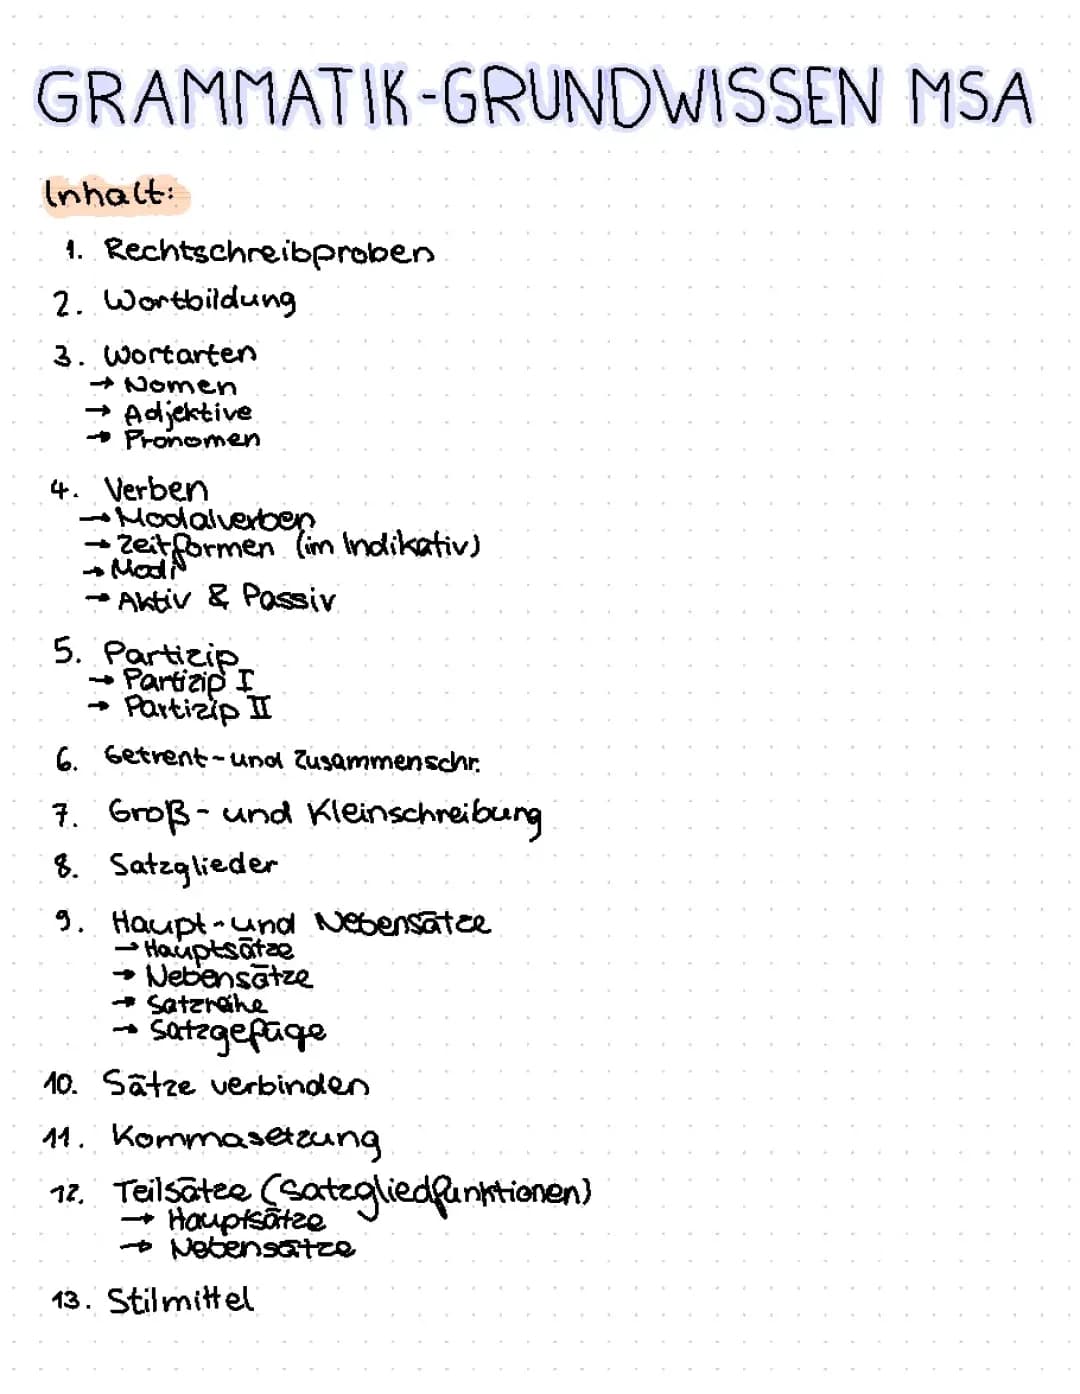 GRAMMATIK-GRUNDWISSEN MSA
Inhalt:
1. Rechtschreibproben
2. Wortbildung
3. Wortarten
→ Nomen
→ Adjektive
→ Pronomen
4. Verben
→ Modalverben
→ Zeitformen (im Indikativ)
→ Modi
→ Aktiv & Passiv
5. Partizip
→ Partizip I
→ Partizip II
6. Getrent-und Zusammenschr.
7. Groß- und Kleinschreibung
8. Satzglieder
9. Haupt-und Nebensätze
→ Hauptsätze
→ Nebensätze
→ Satzreihe
→ Satzgefüge
10. Sätze verbinden
11. Kommasetzung
12. Teilsätze (Satzgliedfunktionen)
→ Hauptsätze
→ Nebensätze
13. Stilmittel